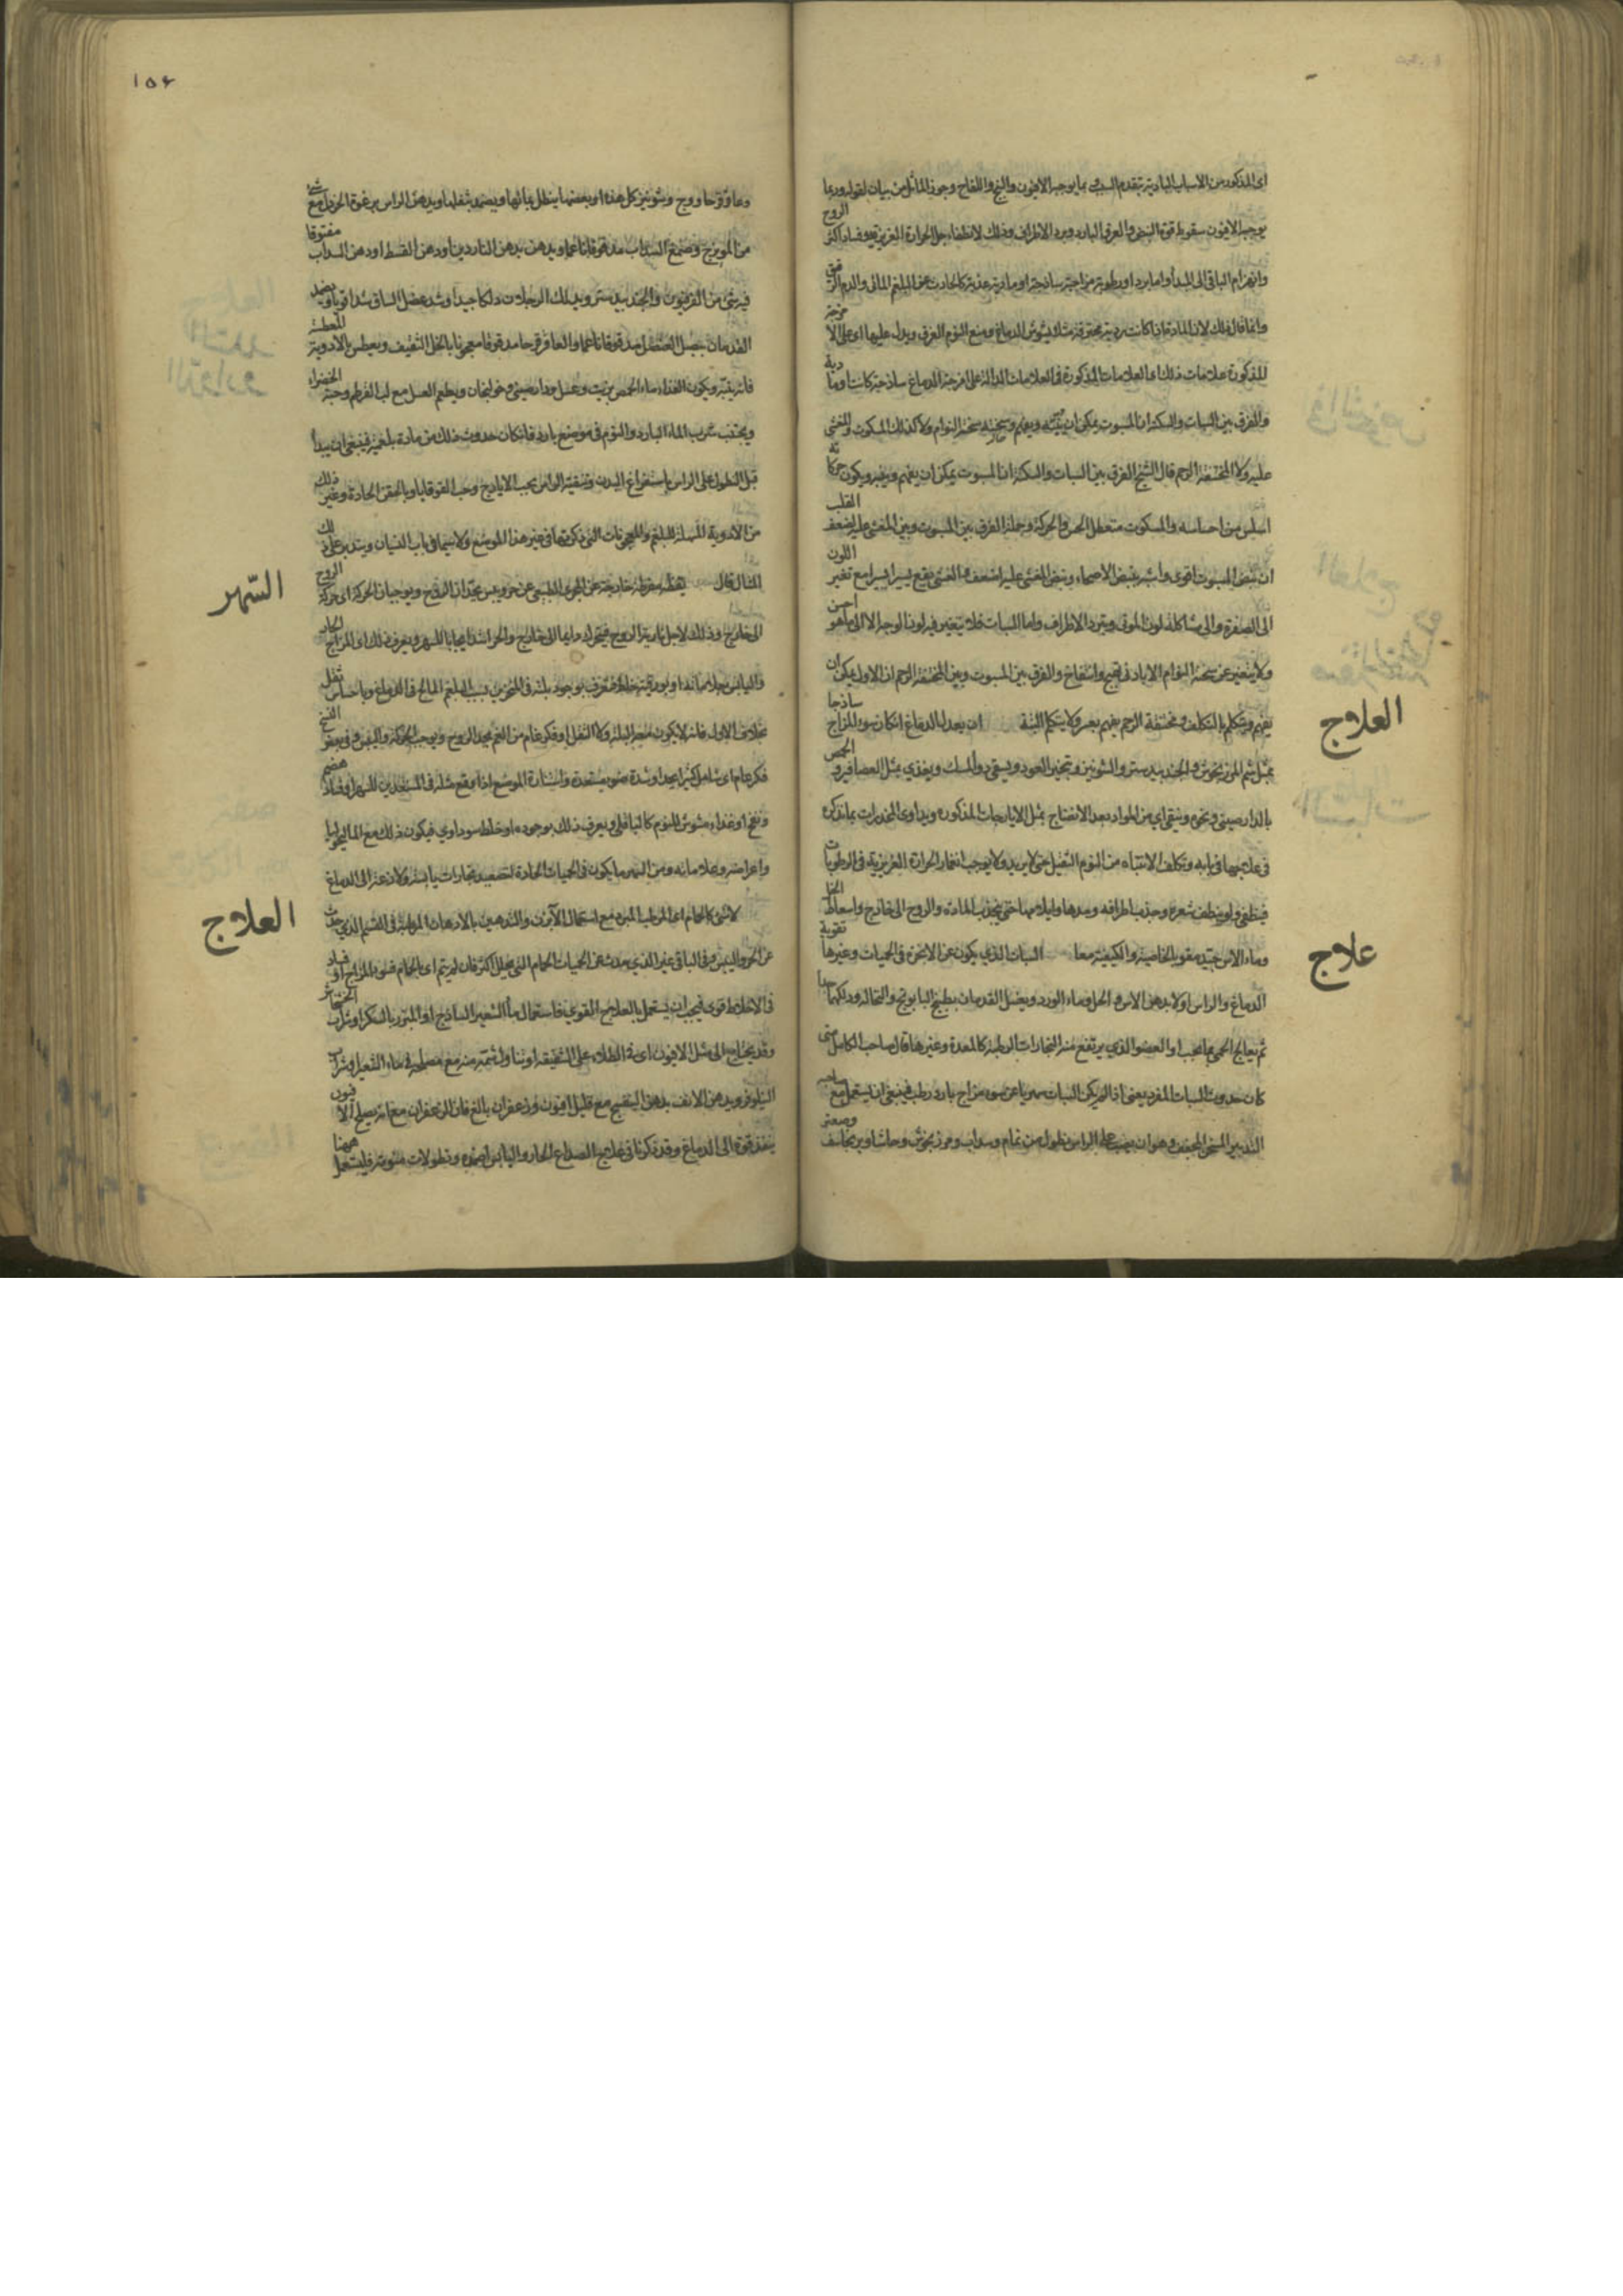 اى المذكور من الاسباب البادية بتقدم السبب بما يوجبه الافيون والبنج واللفاح وجوز الماثل من بيان لقوله وربما
يوجبه الافيون سقوط قوة النبض والعرق البارد وبرد الاطراف وذلك لانطفاء جل الحرارة الغريزية وفساد اكثر الروح
وانهزام الباقى الى المبدأ واما برد او رطوبة مزاجية ساذجة او مادية عذبة كالحادث عن البلغم المائى والدم الرقيق
وانما قال ذلك لان المادة اذا كانت ردية محترقة مثلا يشوش الدماغ ومنع النوم الغرق ويدل عليها اى على الامزجة
المذكورة علامات ذلك اى العلامات المذكورة فى العلامات الدالة على امزجة الدماغ ساذجة كانت او مادية
والفرق بين السبات والسكتة ان المسبوت يمكن ان ينبه ويفهم وسحنته سحنة النوام ولا كذلك المسكوت والمغشى
عليه ولا المختنقة الرحم قال الشيخ الفرق بين السبات والسكتة ان المسبوت يمكن ان يفهم وينبه ويكون حركاته
اسلس من احساسه والمسكوت متعطل الحس والحركة وجملة الفرق بين المسبوت وبين المغشى عليه لضعف القلب
ان نبض المسبوت اقوى واشبه بنبض الاصحاء ونبض المغشى عليه اضعف والغشى يقع يسيرا يسيرا مع تغير اللون
الى الصفرة والى مشاكلة لون الموتى وتبرد الاطراف واما السبات فلا يتغير فيه لون الوجه الا الى ما هو احسن
ولا يتغير عن سحنة النوام الا بادنى تهيج وانتفاخ والفرق بين المسبوت وبين المختنقة الرحم ان الاول يمكن ان
يفهم ويتكلم بالتكلف ومختنقة الرحم يفهم بعسر ولا يتكلم البتة ان يعدل الدماغ ان كان سوء المزاج ساذجا
بمثل شم المرزنجوش والجندبيدستر والشونيز وتبخير العود ويسقى دواء المسك ويغذى بمثل العصافير والحمص
بالدارصينى ونحوه وينقى اى من المواد بعد الانضاج بمثل الايارجات المذكورة ويداوى المخدرات بما نذكره
فى علاجها فى بابه وتكلف الانتباه من النوم الثقيل حتى لا يزيد ولا يوجب انغمار الحرارة الغريزية فى الرطوبات
فينطفى ولو بنطف شعره وجذب اطرافه ومدها وايلامها حتى يجذب المادة والروح الى خارج واسعاط الخل
وماء الآس جيد مقوى بالخاصية والكيفية معا السبات الذى يكون عن الابخرة فى الحميات وغيرها تقوية
الدماغ والراس اولا بدهن الآس او الخل وماء الورد ويغسل القدمان بطبيخ البابونج والنخالة ودلكهما جيدا
ثم يعالج الحمى بما يجب او العضو الذى يرتفع منه البخارات الرطبة كالمعدة وغيرها قال صاحب الكامل متى
كان حدوث السبات المفرد يعنى اذا لم يكن السبات سهريا عن سوء مزاج بارد رطب فينبغى ان يستعمل مع صاحبه
التدبير المسخن المجفف وهو ان يصب على الراس نطول من نمام وسداب ومرزنجوش وحاشا وبرنجاسف وصعتر
العلاج
علاج
١٥٤
وعاقرقرحا ووج وشونيز كل هذه او بعضها ينطل بمائها ويضمد بثفلها ويدهن الراس برغوة الخردل مع شىء
من المويزج وصمغ السداب مدقوقا ناعما ويدهن بدهن الناردين او دهن القسط او دهن السداب مفتوقا
فيه شئ من الفرفيون والجندبيدستر ويدلك الرجلان دلكا جيدا وشد عضل الساق شدا قويا ويضمد
القدمان ببصل العنصل مدقوقا ناعما والعاقرقرحا مدقوقا معجونا بالخل الثقيف ويعطس بالادوية المعطسة
فانه ينبه ويكون الغذاء ماء الحمص بزيت وعسل ودارصينى وخولنجان ويطعم العسل مع لب القرطم وحبة الخضراء
ويجتنب شرب الماء البارد والنوم فى موضع بارد فان كان حدوث ذلك من مادة بلغمية فينبغى ان يبدأ
قبل النطول على الراس باستفراغ البدن وتنقية الراس بحب الايارج وحب القوقايا وبالحقن الحادة وغير ذلك
من الادوية المسهلة للبلغم والمعجونات التى ذكرتها فى غير هذا الموضع ولا سيما فى باب النسيان ويتدبر على ذلك
المثال قال يقظة مفرطة خارجة عن المجرى الطبيعى عن حر ويبس يحدان الروح ويوجبان الحركة اى حركة الروح
الى خارج وذلك لاجل نارية الروح فيتحرك دايما الى خارج والحر اشد ايجابا للسهر ويعرف ذلك اى المزاج الحار
واليابس بعلاماتها او بورقية خلط فتعرف بوجود بلة فى المنخرين بسبب البلغم المالح فى الدماغ وباحساس ثقل
بخلاف الاول فانه لا يكون معه البلة ولا الثقل او فكر غام من الغم يحد الروح ويوجب الحركة واليبس وفى بعض النسخ
فكر عام اى شامل كثير جدا وشدة ضوء يستعدة واستنارة الموضع اذا وقع مثله فى المستعدين للسهر او فساد هضم
ونفخ او غذاء مشوش للنوم كالباقلى ويعرف ذلك بوجوده او خلط سوداوى فيكون ذلك مع الماليخوليا
واعراضه وعلاماته ومن السهر ما يكون فى الحميات الحادة لتصعيد بخارات يابسة ولاذعة الى الدماغ
لا شئ كالحمام اى المرطب المبرد مع استعمال الآبزن والتدهين بالادهان المرطبة فى القسم الذى حدث
عن الحر واليبس وفى الباقى غير الذى حدث عن الحميات الحمام التى تحلل اكثر فان لم ينم اى بالحمام فسوء المزاج او فساد
فى الاخلاط قوى فيجب ان يستعمل بالعلاج القوى فاستعمال ماء الشعير الساذج او المبزر بالسكر او شراب الخشخاش
وقد يحتاج الى مثل الافيون اى فى الطلاء على الشقيقة او شئ اول شمة منه مع مصلحه فى ماء الشعير او شراب
النيلوفر ويدهن الانف بدهن البنفسج مع قليل افيون وزعفران بالغ فان الزعفران مع انه يصلح الافيون
ينفذ قوة الى الدماغ وقد ذكرنا فى علاج الصداع الحار واليابس اضمدة ونطولات منومة فليستعمل ههنا
السّهر
العلاج